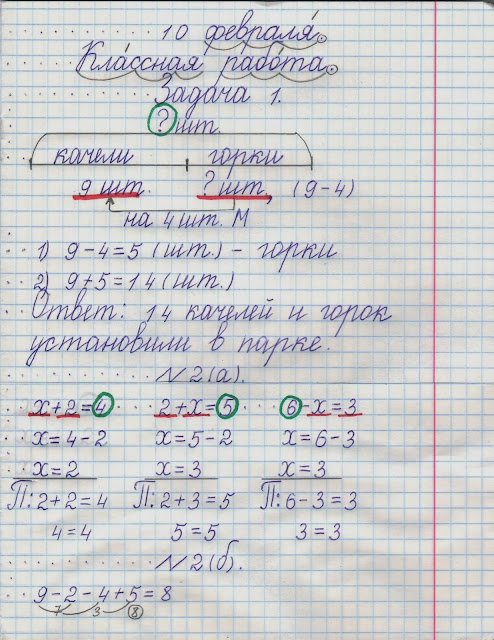 10 февраля.
Классная работа.
Задача 1.
? шт.
качели горки
9 шт. ? шт., (9-4)
на 4 шт. М
1) 9-4=5 (шт.) - горки
2) 9+5=14 (шт.)
Ответ: 14 качелей и горок
установили в парке.
N 2(а).
х+2=4 2+х=5 6-х=3
х=4-2 х=5-2 х=6-3
х=2 х=3 х=3
П: 2+2=4 П: 2+3=5 П: 6-3=3
4=4 5=5 3=3
N 2(б).
9-2-4+5=8
7 3 8